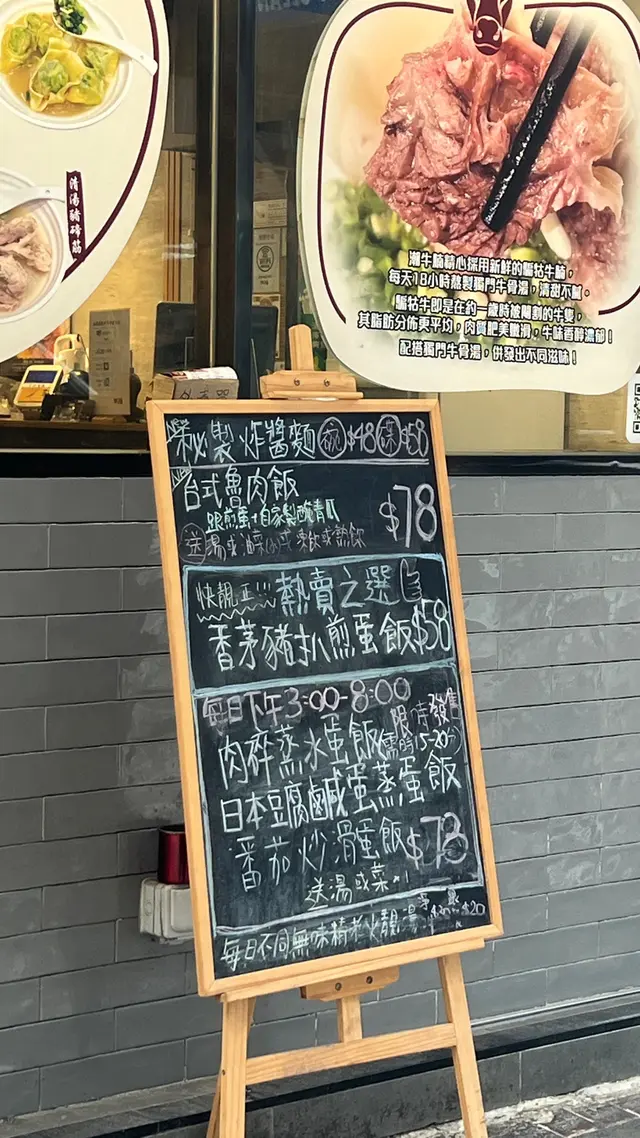 清湯豬蹄筋
潮牛腩精心採用新鮮的騸牯牛腩，
每天18小時熬製獨門牛骨湯，清甜不膩。
騸牯牛即是在約一歲時被閹割的牛隻，
其脂肪分佈更平均，肉質肥美嫩滑，牛味香醇濃郁！
配搭獨門牛骨湯，併發出不同滋味！
秘製炸醬麵 $48 $58
台式魯肉飯
跟煎蛋+自家製酸青瓜
$78
送湯或油菜(小)或凍飲或熱飲
快靚正!!! 熱賣之選
香茅豬扒煎蛋飯$58
每日下午3:00-8:00
限時發售
肉碎蒸水蛋飯 需時15-20分
日本豆腐鹹蛋蒸蛋飯
番茄炒滑蛋飯 $78
送湯或菜
每日不同無味精老火靚湯 $20